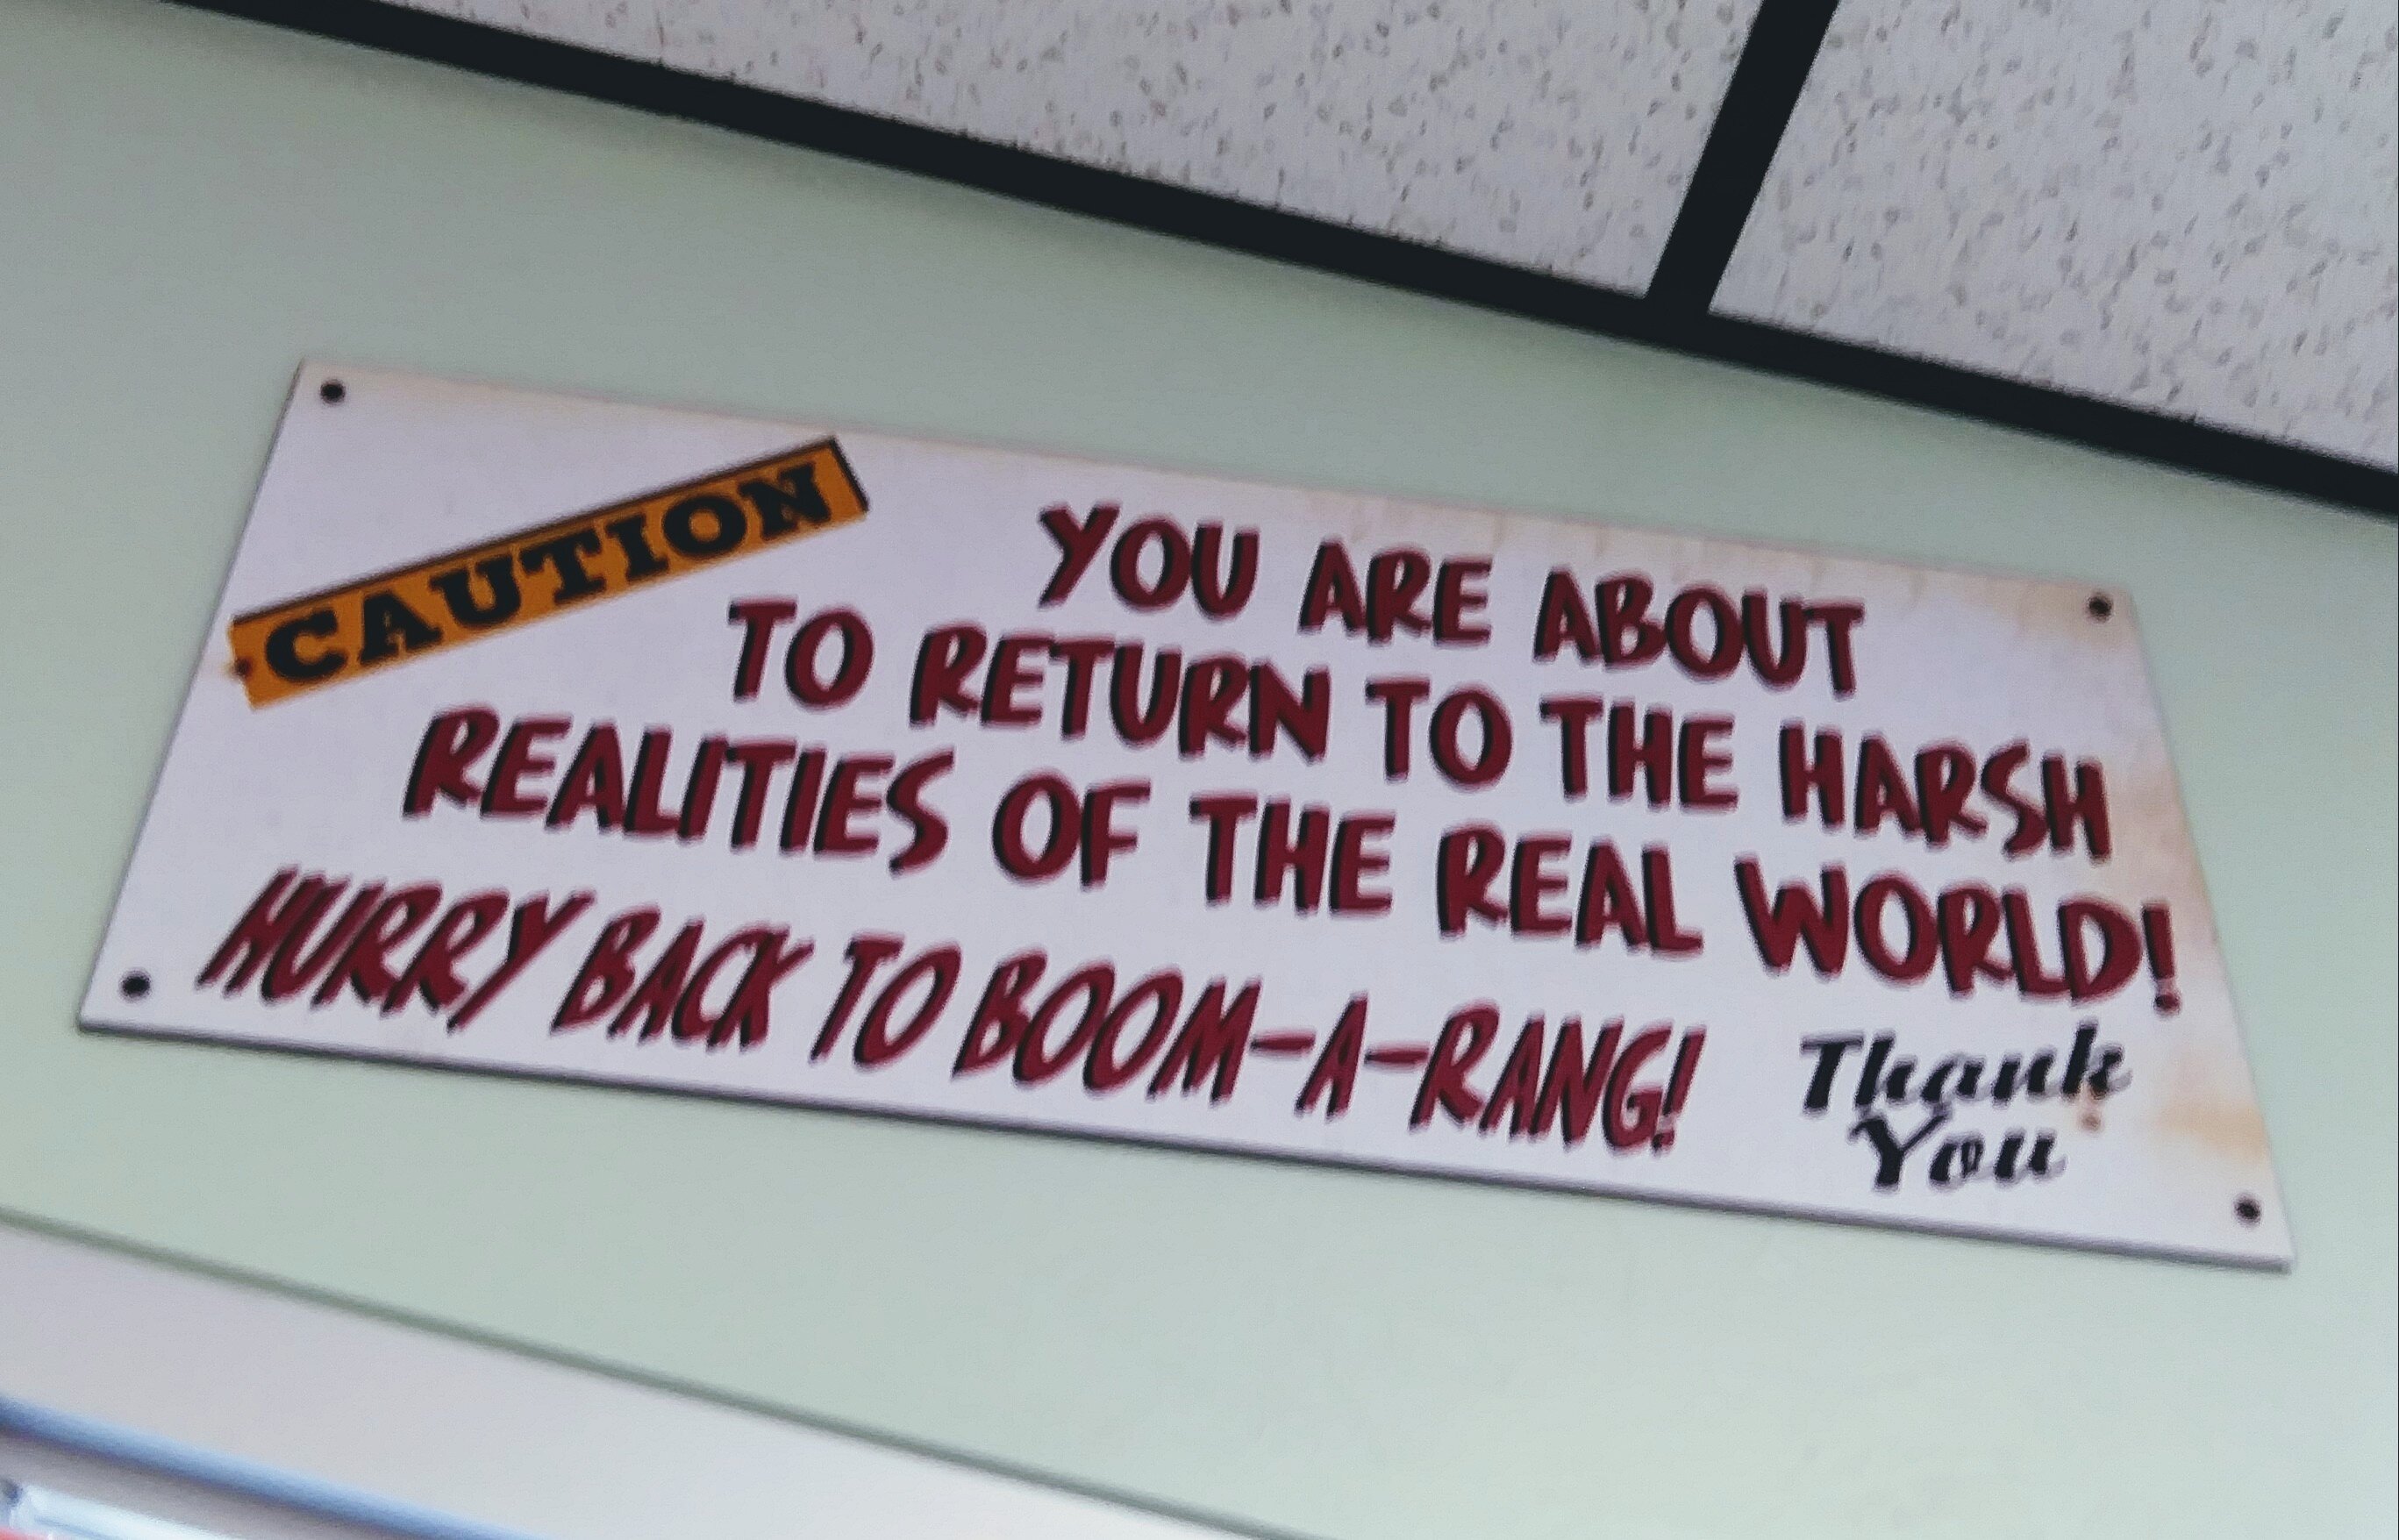 CAUTION
YOU ARE ABOUT
TO RETURN TO THE HARSH
REALITIES OF THE REAL WORLD!
HURRY BACK TO BOOM-A-RANG!
Thank
You